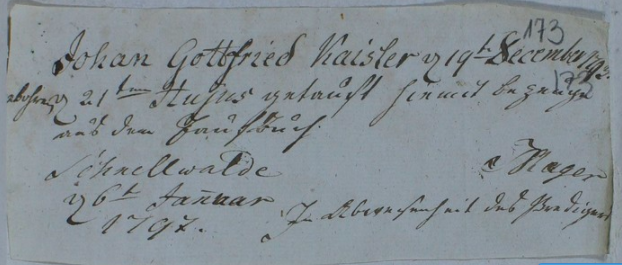 173
Johan Gottfried Kaisler d 19t December 1792
gebohren d 21ten Hujus getauft hiemit bezeuge
aus dem Taufbuch.
Schnellwalde
d 6t Januar
1797.
Hager
In Abwesenheit des Predigers